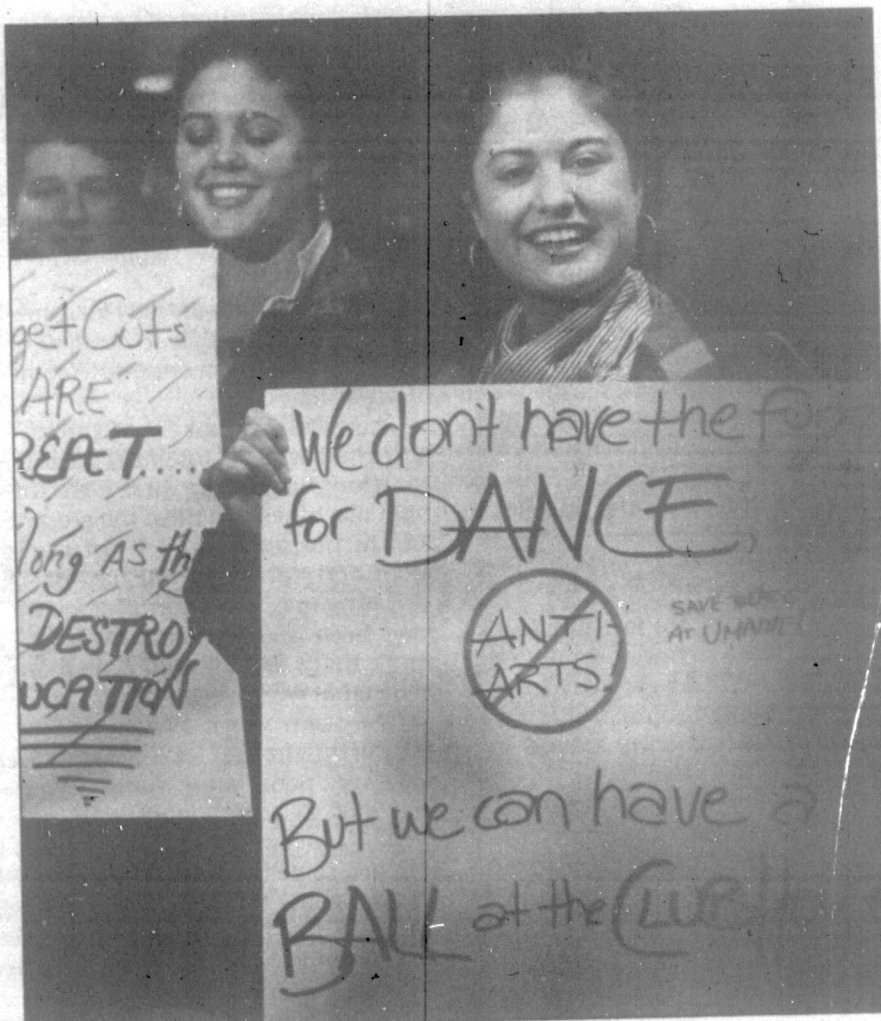 get Cuts
ARE
REAT.....
long As th
DESTROY
UCATION
We don't have the
for DANCE,
ANTI-
ARTS
SAVE
AT UMAINE!
But we can have a
BALL at the CLUB